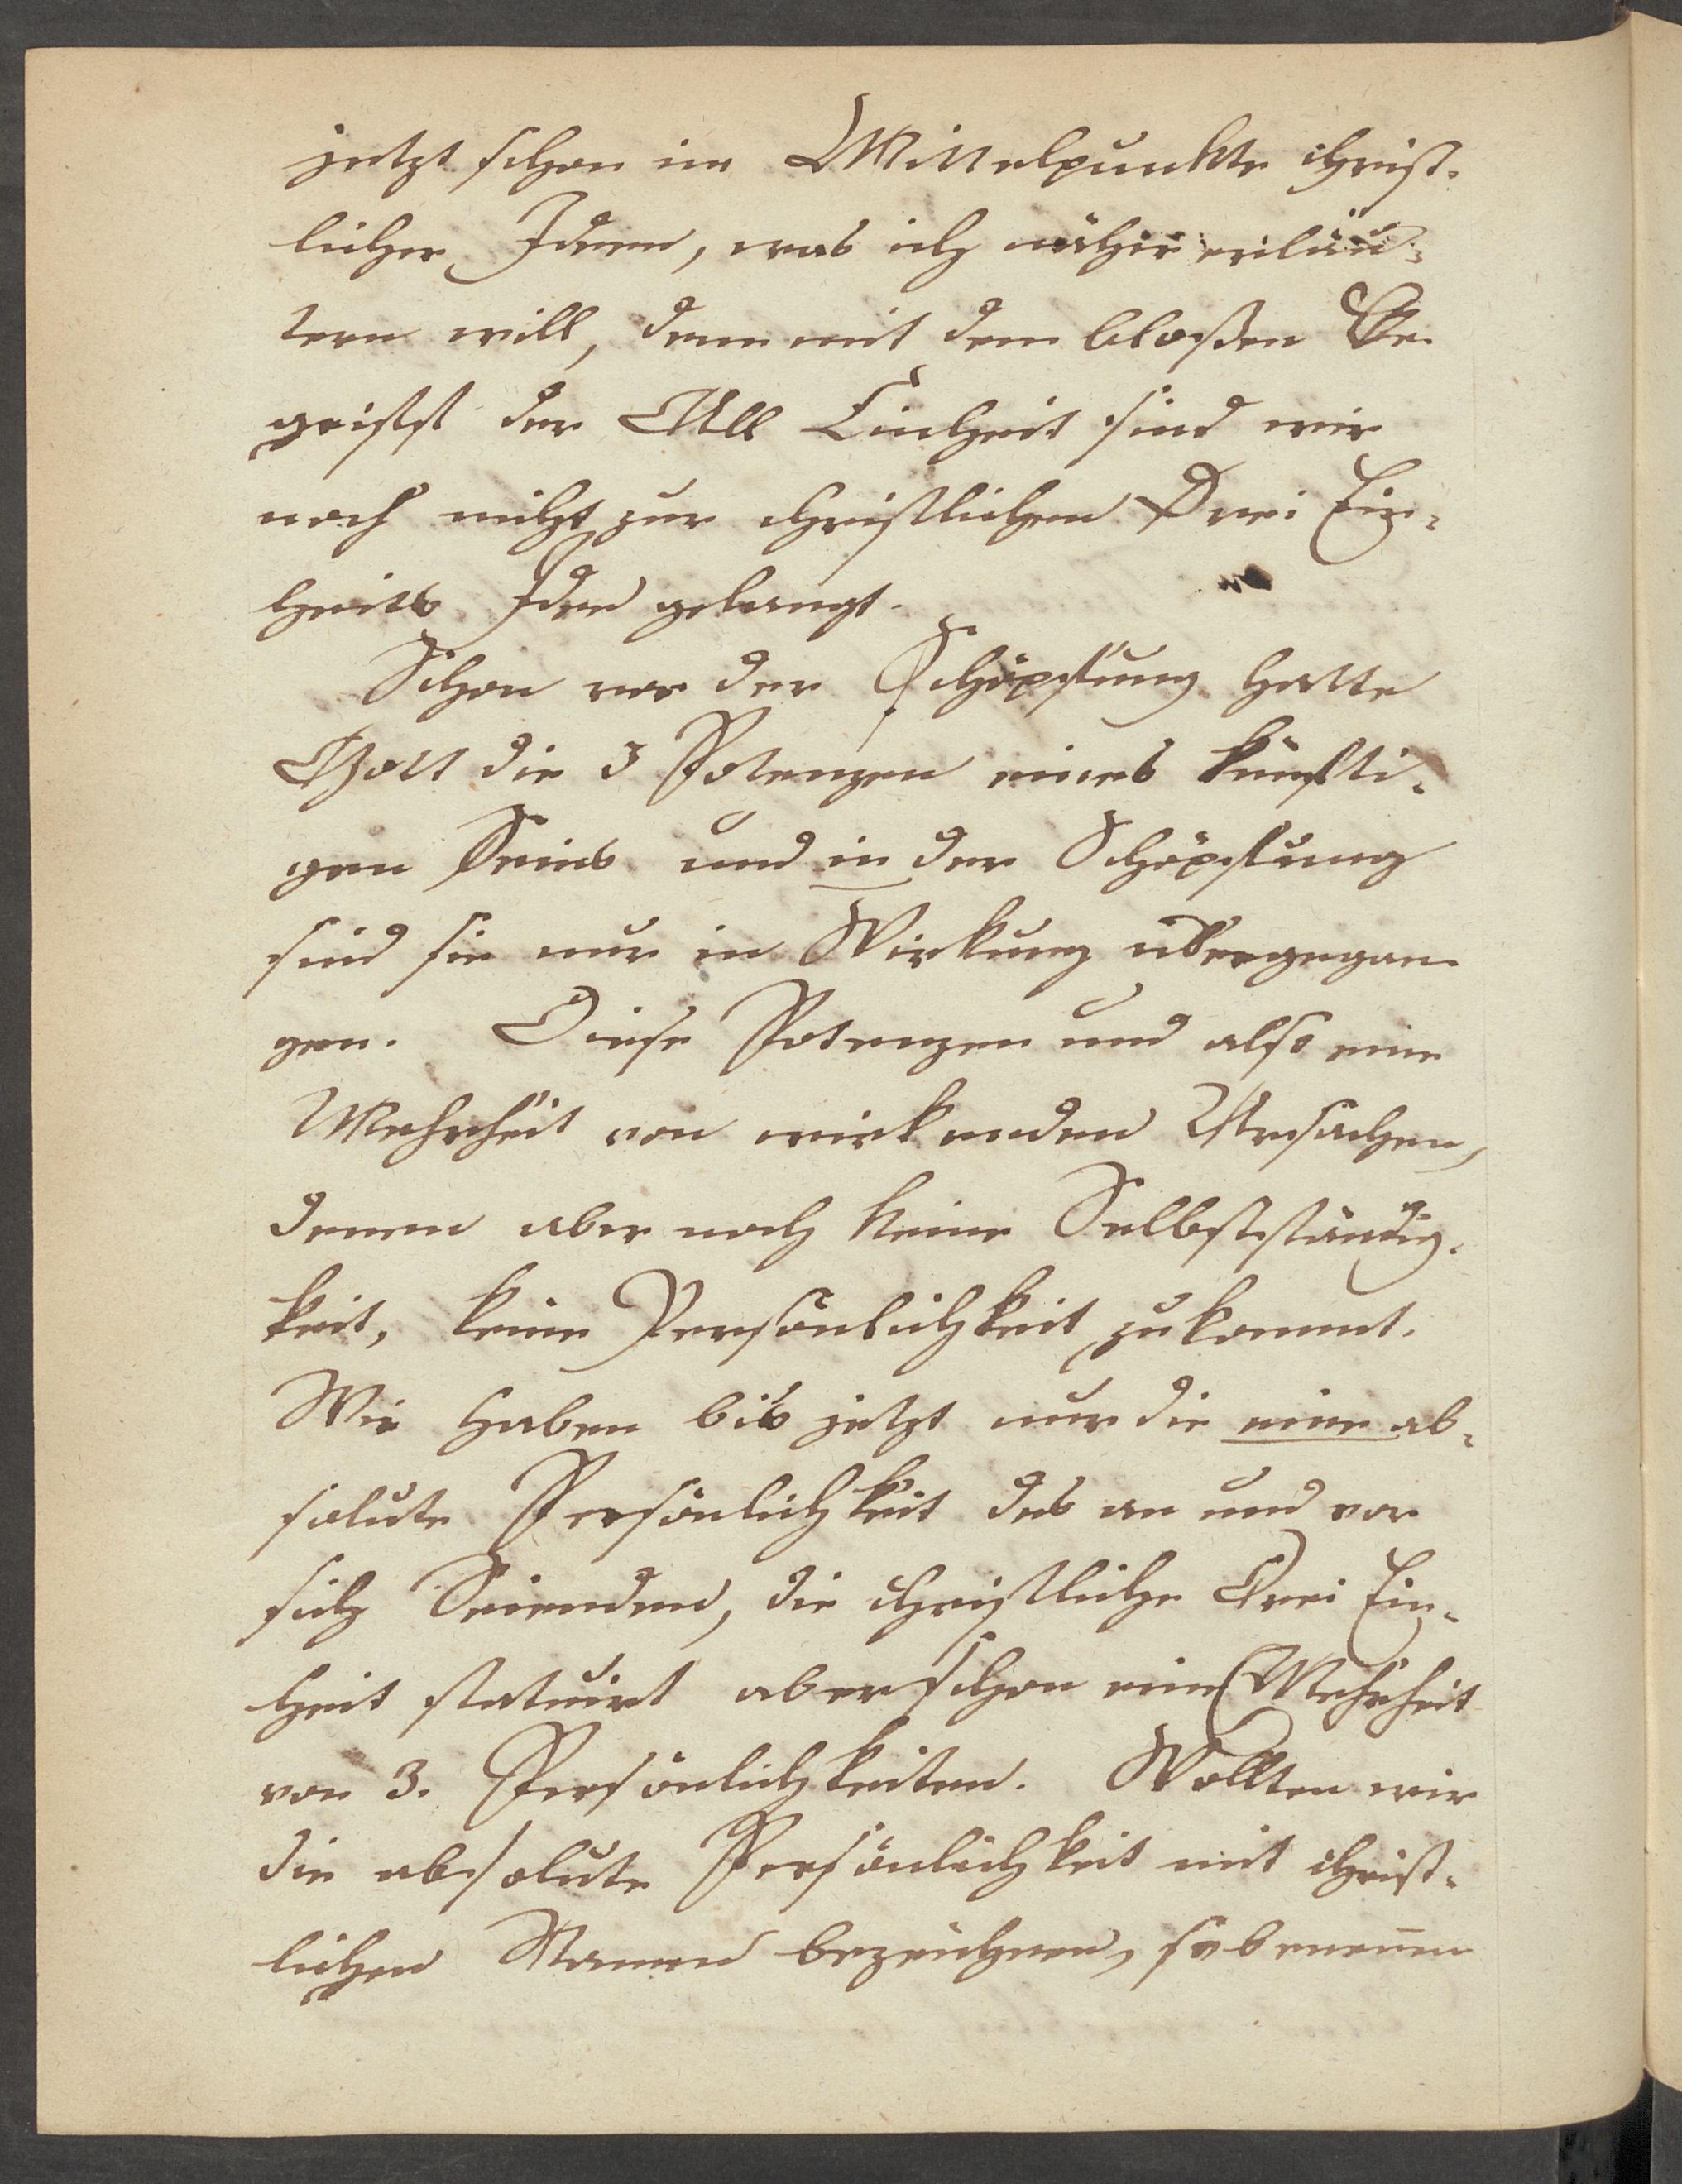 jetzt schon im Mittelpunkte christ-
licher Ideen, was ich näher erläu-
tern will, denn mit dem bloßen Be-
griffe der All Einheit sind wir
noch nicht zur christlichen Drei Ein-
heits Idee gelangt.
Schon vor der Schöpfung hatte
Gott die 3 Potenzen eines künfti-
gen Seins und in der Schöpfung
sind sie nur in Wirkung übergegan-
gen. Diese Potenzen und also eine
Mehrheit von wirkenden Ursachen,
denen aber noch keine Selbstständig-
keit, keine Persönlichkeit zukommt.
Wir haben bis jetzt nur die eine ab-
solute Persönlichkeit des an und vor
sich Seienden, die christliche Drei Ein-
heit statuirt aber schon eine Mehrheit
von 3. Persönlichkeiten. Wollten wir
die absolute Persönlichkeit mit christ-
lichen Namen bezeichnen, so benenen